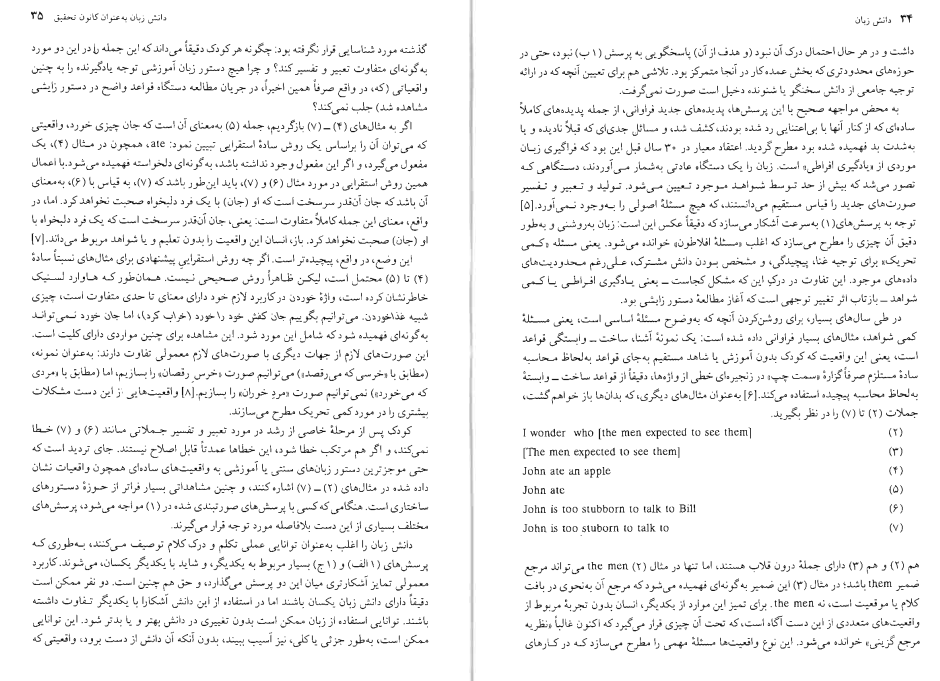 ۳۴ دانش زبان
داشت و در هر حال احتمال درک آن نبود (و هدف از آن) پاسخگویی به پرسش (۱ ب) نبود، حتی در
حوزه‌های محدودتری که بخش عمده کار در آنجا متمرکز بود. تلاشی هم برای تعیین آنچه که در ارائه
توجیه جامعی از دانش سخنگو یا شنونده دخیل است صورت نمی‌گرفت.
به محض مواجهه صحیح با این پرسش‌ها، پدیده‌های جدید فراوانی، از جمله پدیده‌های کاملاً
ساده‌ای که از کنار آنها با بی‌اعتنایی رد شده بودند، کشف شد، و مسائل جدی‌ای که قبلاً نادیده و یا
به‌شدت بد فهمیده شده بود مطرح گردید. اعتقاد معیار در ۳۰ سال قبل این بود که فراگیری زبان
موردی از «یادگیری افراطی» است. زبان را یک دستگاه عادتی به‌شمار می‌آوردند، دستگاهی که
تصور می‌شد که بیش از حد توسط شواهد موجود تعیین می‌شود. تولید و تعبیر و تفسیر
صورت‌های جدید را قیاس مستقیم می‌دانستند، که هیچ مسئلهٔ اصولی را به‌وجود نمی‌آورد.[۵]
توجه به پرسش‌های(۱) به‌سرعت آشکار می‌سازد که دقیقاً عکس این است: زبان به‌روشنی و به‌طور
دقیق آن چیزی را مطرح می‌سازد که اغلب «مسئلهٔ افلاطون» خوانده می‌شود. یعنی مسئله «کمی
تحریک» برای توجیه غنا، پیچیدگی، و مشخص بودن دانش مشترک، علی‌رغم محدودیت‌های
داده‌های موجود. این تفاوت در درکِ این که مشکل کجاست ــ یعنی یادگیری افراطی یا کمی
شواهد ــ بازتاب اثر تغییر توجهی است که آغاز مطالعهٔ دستور زایشی بود.
در طی سال‌های بسیار، برای روشن‌کردن آنچه که به‌وضوح مسئلهٔ اساسی است، یعنی مسئلهٔ
کمی شواهد، مثال‌های بسیار فراوانی داده شده است: یک نمونهٔ آشنا، ساخت ــ وابستگی قواعد
است، یعنی این واقعیت که کودک بدون آموزش یا شاهد مستقیم به‌جای قواعد به‌لحاظ محاسبه
سادهٔ مستلزم صرفاً گزارهٔ «سمت چپ» در زنجیره‌ای خطی از واژه‌ها، دقیقاً از قواعد ساخت ــ وابستهٔ
به‌لحاظ محاسبه پیچیده استفاده می‌کند.[۶] به‌عنوان مثال‌های دیگری، که بدان‌ها باز خواهم گشت،
جملات (۲) تا (۷) را در نظر بگیرید.
I wonder who [the men expected to see them] (۲)
[The men expected to see them] (۳)
John ate an apple (۴)
John ate (۵)
John is too stubborn to talk to Bill (۶)
John is too stuborn to talk to (۷)
هم (۲) و هم (۳) دارای جملهٔ درون قلاب هستند، اما تنها در مثال (۲) the men می‌تواند مرجع
ضمیر them باشد؛ در مثال (۳) این ضمیر به‌گونه‌ای فهمیده می‌شود که مرجع آن به‌نحوی در بافت
کلام یا موقعیت است، نه the men. برای تمیز این موارد از یکدیگر، انسان بدون تجربهٔ مربوط از
واقعیت‌های متعددی از این دست آگاه است، که تحت آن چیزی قرار می‌گیرد که اکنون غالباً «نظریه
مرجع گزینی» خوانده می‌شود. این نوع واقعیت‌ها مسئلهٔ مهمی را مطرح می‌سازد که در کارهای
دانش زبان به‌عنوان کانون تحقیق ۳۵
گذشته مورد شناسایی قرار نگرفته بود: چگونه هر کودک دقیقاً می‌داند که این جمله را در این دو مورد
به‌گونه‌ای متفاوت تعبیر و تفسیر کند؟ و چرا هیچ دستور زبان آموزشی توجه یادگیرنده را به چنین
واقعیاتی (که، در واقع صرفاً همین اخیراً، در جریان مطالعه دستگاه قواعد واضح در دستور زایشی
مشاهده شد) جلب نمی‌کند؟
اگر به مثال‌های (۴) ــ (۷) بازگردیم، جمله (۵) به‌معنای آن است که جان چیزی خورد، واقعیتی
که می‌توان آن را براساس یک روش سادهٔ استقرایی تبیین نمود: ate، همچون در مثال (۴)، یک
مفعول می‌گیرد، و اگر این مفعول وجود نداشته باشد، به‌گونه‌ای دلخواسته فهمیده می‌شود. با اعمال
همین روش استقرایی در مورد مثال (۶) و (۷)، باید این‌طور باشد که (۷)، به قیاس با (۶)، به‌معنای
آن باشد که جان آن‌قدر سرسخت است که او (جان) با یک فرد دلبخواه صحبت نخواهد کرد. اما، در
واقع، معنای این جمله کاملاً متفاوت است: یعنی، جان آن‌قدر سرسخت است که یک فرد دلبخواه با
او (جان) صحبت نخواهد کرد. باز، انسان این واقعیت را بدون تعلیم و یا شواهد مربوط می‌داند.[۷]
این وضع، در واقع، پیچیده‌تر است. اگر چه روش استقرایی پیشنهادی برای مثال‌های نسبتاً سادهٔ
(۴) تا (۵) محتمل است، لیکن ظاهراً روش صحیحی نیست. همان‌طور که هاوارد لسنیک
خاطرنشان کرده است، واژهٔ خوردن در کاربرد لازم خود دارای معنای تا حدی متفاوت است، چیزی
شبیه غذاخوردن. می‌توانیم بگوییم جان کفش خود را خورد (خراب کرد)، اما جان خورد نمی‌تواند
به‌گونه‌ای فهمیده شود که شامل این مورد شود. این مشاهده برای چنین مواردی دارای کلیت است.
این صورت‌های لازم از جهات دیگری با صورت‌های لازم معمولی تفاوت دارند: به‌عنوان نمونه،
(مطابق با «خرسی که می‌رقصد») می‌توانیم صورت «خرسِ رقصان» را بسازیم، اما (مطابق با «مردی
که می‌خورد») نمی‌توانیم صورت «مردِ خوران» را بسازیم.[۸] واقعیت‌هایی از این دست مشکلات
بیشتری را در مورد کمی تحریک مطرح می‌سازند.
کودک پس از مرحلهٔ خاصی از رشد در مورد تعبیر و تفسیر جملاتی مانند (۶) و (۷) خطا
نمی‌کند، و اگر هم مرتکب خطا شود، این خطاها عمدتاً قابل اصلاح نیستند. جای تردید است که
حتی موجزترین دستور زبان‌های سنتی یا آموزشی به واقعیت‌های ساده‌ای همچون واقعیات نشان
داده شده در مثال‌های (۲) ــ (۷) اشاره کنند، و چنین مشاهداتی بسیار فراتر از حوزهٔ دستورهای
ساختاری است. هنگامی که کسی با پرسش‌های صورتبندی شده در (۱) مواجه می‌شود، پرسش‌های
مختلف بسیاری از این دست بلافاصله مورد توجه قرار می‌گیرند.
دانش زبان را اغلب به‌عنوان توانایی عملی تکلم و درک کلام توصیف می‌کنند، به‌طوری که
پرسش‌های (۱ الف) و (۱ ج) بسیار مربوط به یکدیگر، و شاید با یکدیگر یکسان، می‌شوند. کاربرد
معمولی تمایز آشکارتری میان این دو پرسش می‌گذارد، و حق هم چنین است. دو نفر ممکن است
دقیقاً دارای دانش زبان یکسان باشند اما در استفاده از این دانش آشکارا با یکدیگر تفاوت داشته
باشند. توانایی استفاده از زبان ممکن است بدون تغییری در دانش بهتر و یا بدتر شود. این توانایی
ممکن است، به‌طور جزئی یا کلی، نیز آسیب ببیند، بدون آنکه آن دانش از دست برود، واقعیتی که